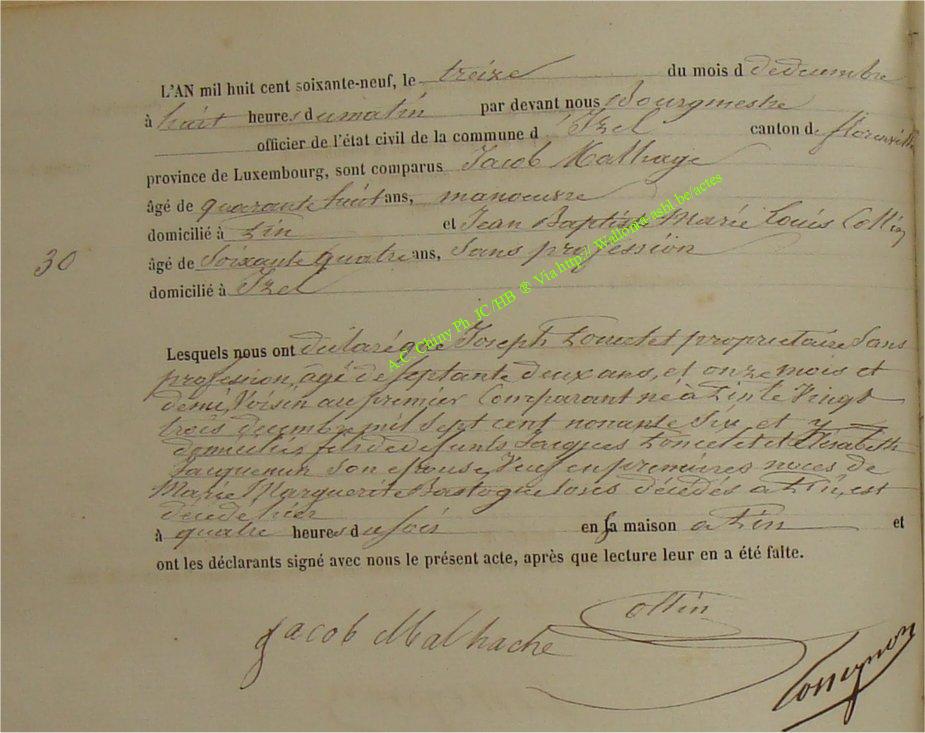 L'AN mil huit cent soixante-neuf, le treize du mois d dedecembre
à huit heures dumatin par devant nous Bourgmestre
officier de l'état civil de la commune d Izel canton de florenville
province de Luxembourg, sont comparus Jacob Malhage
âgé de quarante huit ans, manoeuvre
domicilié à Pin et Jean Baptiste Marie Louis Collin
30
âgé de Soixante quatre ans, Sans profession
domicilié à Izel
Lesquels nous ont déclaré que Joseph Poncelet proprietaire Sans
profession, âgé de Septante deux ans, et onze mois et
demi, Voisin au premier Comparant né à Pin le Vingt
trois décembre mil Sept cent nonante Six et y
domicilié, fils de defunts Jacques Poncelet et Elisabeth
Jacquemin Son epouse, Veuf en premières noces de
Marie Marguerite Bastogne tous décédés a Pin, est
décédé hier
à quatre heures du Soir en sa maison a Pin et
ont les déclarants signé avec nous le présent acte, après que lecture leur en a été faite.
Jacob Malhache
Collin
A.C. Chiny Ph. JC /HB ® Via http:/ Wallonia.asbl.be/actes